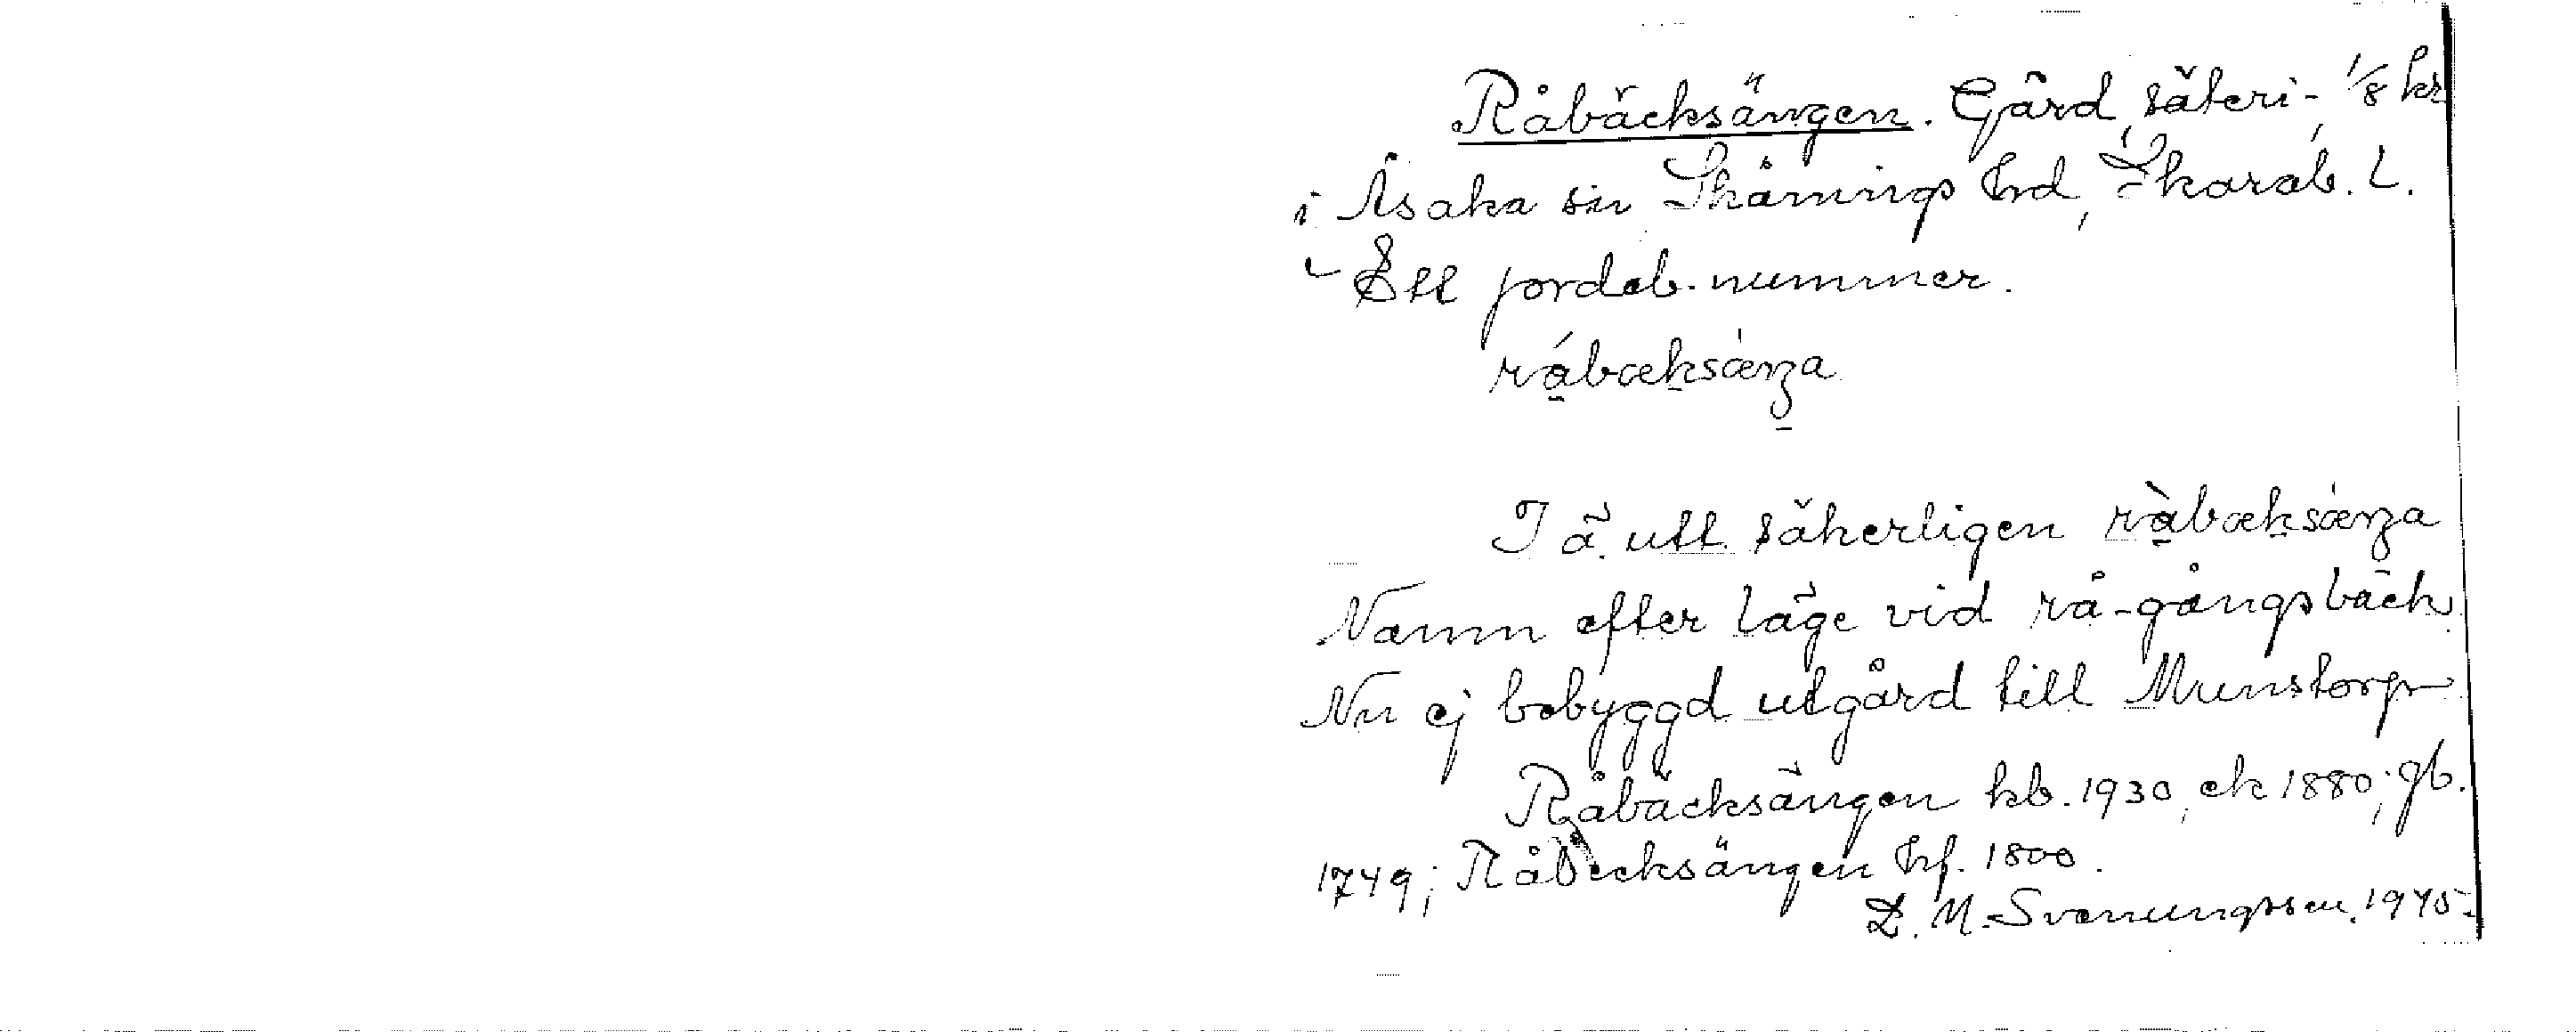 Råbäcksängen. Gård, säteri-, 1/8 kr
i Åsaka sn Skånings hd, Skarab. l.
Ett jordeb. nummer.
råbæksæŋa
I ä. utt. säkerligen ràbæksæŋa
Namn efter läge vid rå-gångsbäck
Nu ej bebyggd utgård till Munstorp
Råbäcksängen kb. 1930, ek 1880; gb.
1749; Råbecksängen hf. 1800.
D. N. Svenungsson. 1945.